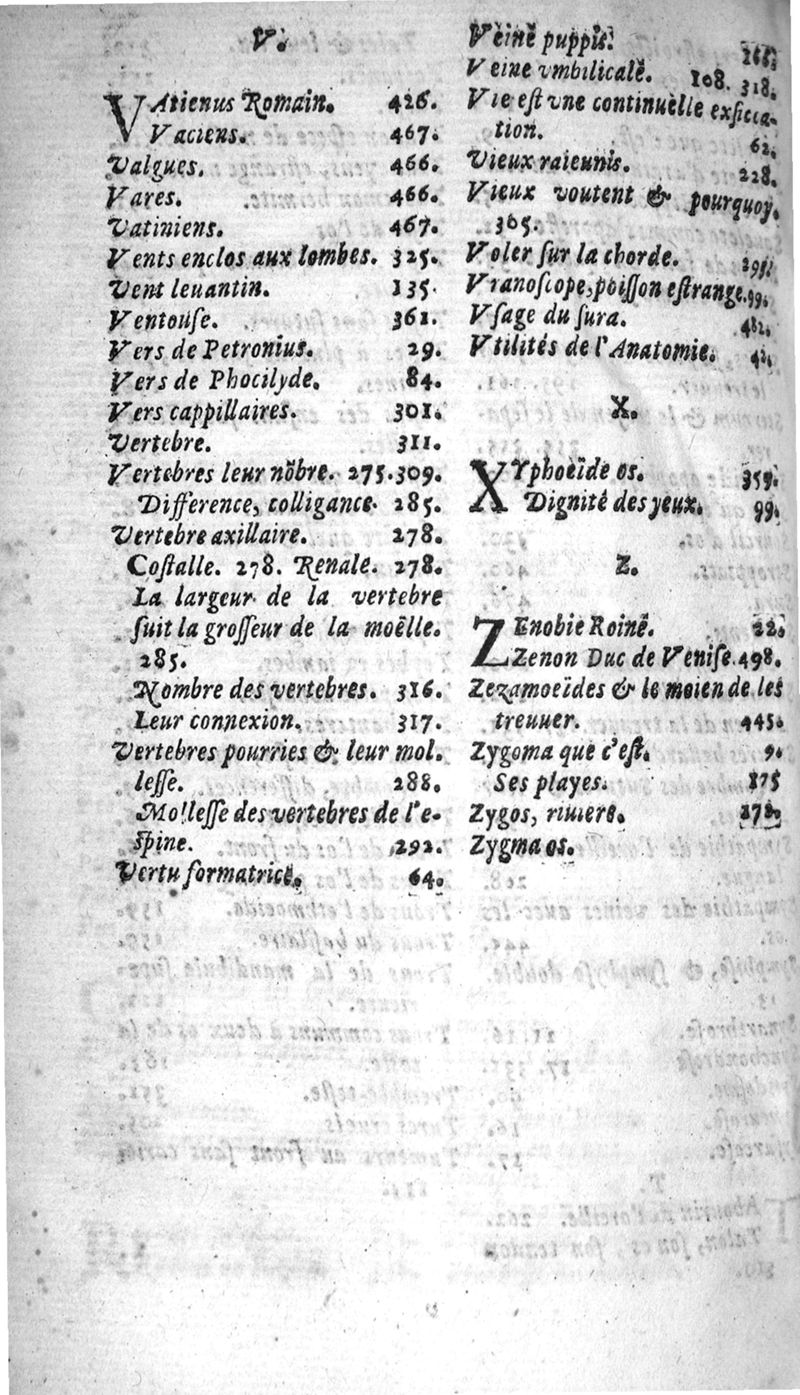 V.
VAtienus Romain. 426.
Vaciens. 467.
Valgues. 466.
Vares. 466.
Vatiniens. 467.
Vents enclos aux lombes. 325.
Vent leuantin. 135.
Ventouse. 361.
Vers de Petronius. 29.
Vers de Phocilyde. 84.
Vers cappillaires. 301.
Vertebre. 311.
Vertebres leur nõbre. 275.309.
Difference, colligance. 285.
Vertebre axillaire. 278.
Costalle. 278. Renale. 278.
La largeur de la vertebre
suit la grosseur de la moëlle.
285.
Nombre des vertebres. 316.
Leur connexion. 317.
Vertebres pourries & leur mol-
lesse. 288.
Mollesse des vertebres de l'e-
spine. 292.
Vertu formatrice. 64.
Veine puppis. 268.
Veine vmbilicale. 108. 318.
Vie est vne continuelle exsicca-
tion. 62.
Vieux raieunis. 228.
Vieux voutent & pourquoy.
305.
Voler sur la chorde.
Vranoscope, poisson estrange. 99.
Vsage du sura. 482.
Vtilités de l'Anatomie.
X.
XYphoëide os. 359.
Dignité des yeux. 99.
Z.
ZEnobie Roine. 22.
Zenon Duc de Venise. 498.
Zezamoeïdes & le moien de les
treuuer. 445.
Zygoma que c'est. 9.
Ses playes. 175
Zygos, riuiere. 172.
Zygma os.